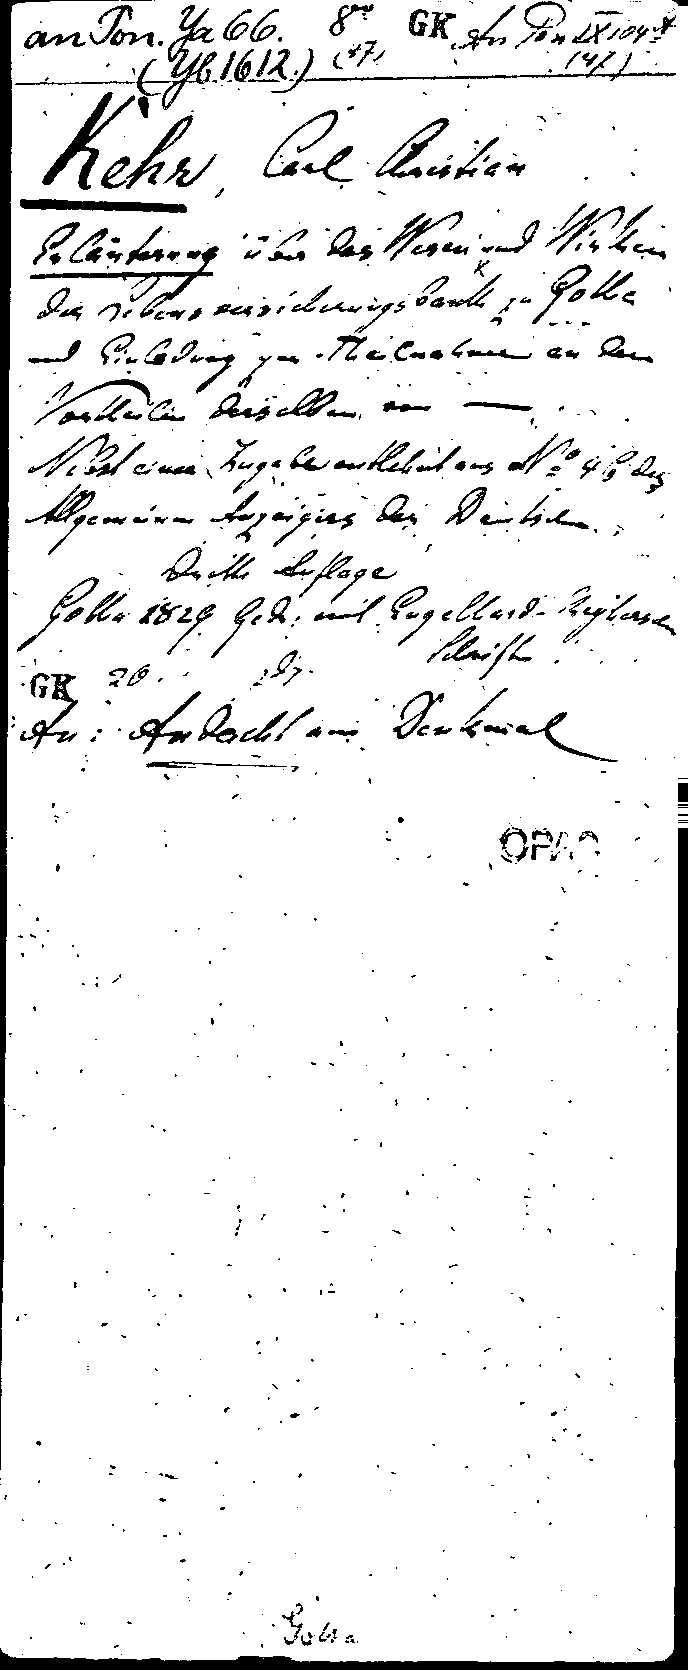 an Pon. Ya 66. 8vo GK An Pon IX 104
(Yb 1612.) (47) (47)
Kehr, Carl Christian
Erläuterung über das Wesen und Wirken
der Lebensversicherungsbank zu Gotha
und Einladung zur Theilnahme an den
Vortheilen derselben von —
Nebst einer Zugabe entlehnt aus No 46 des
Allgemeinen Anzeigers der Deutschen.
Dritte Auflage
Gotha 1829 Gedr. mit Engelhard-Reyherschen
Schriften
GK 20
An: Andacht am Denkmal
OPAC
Gotha